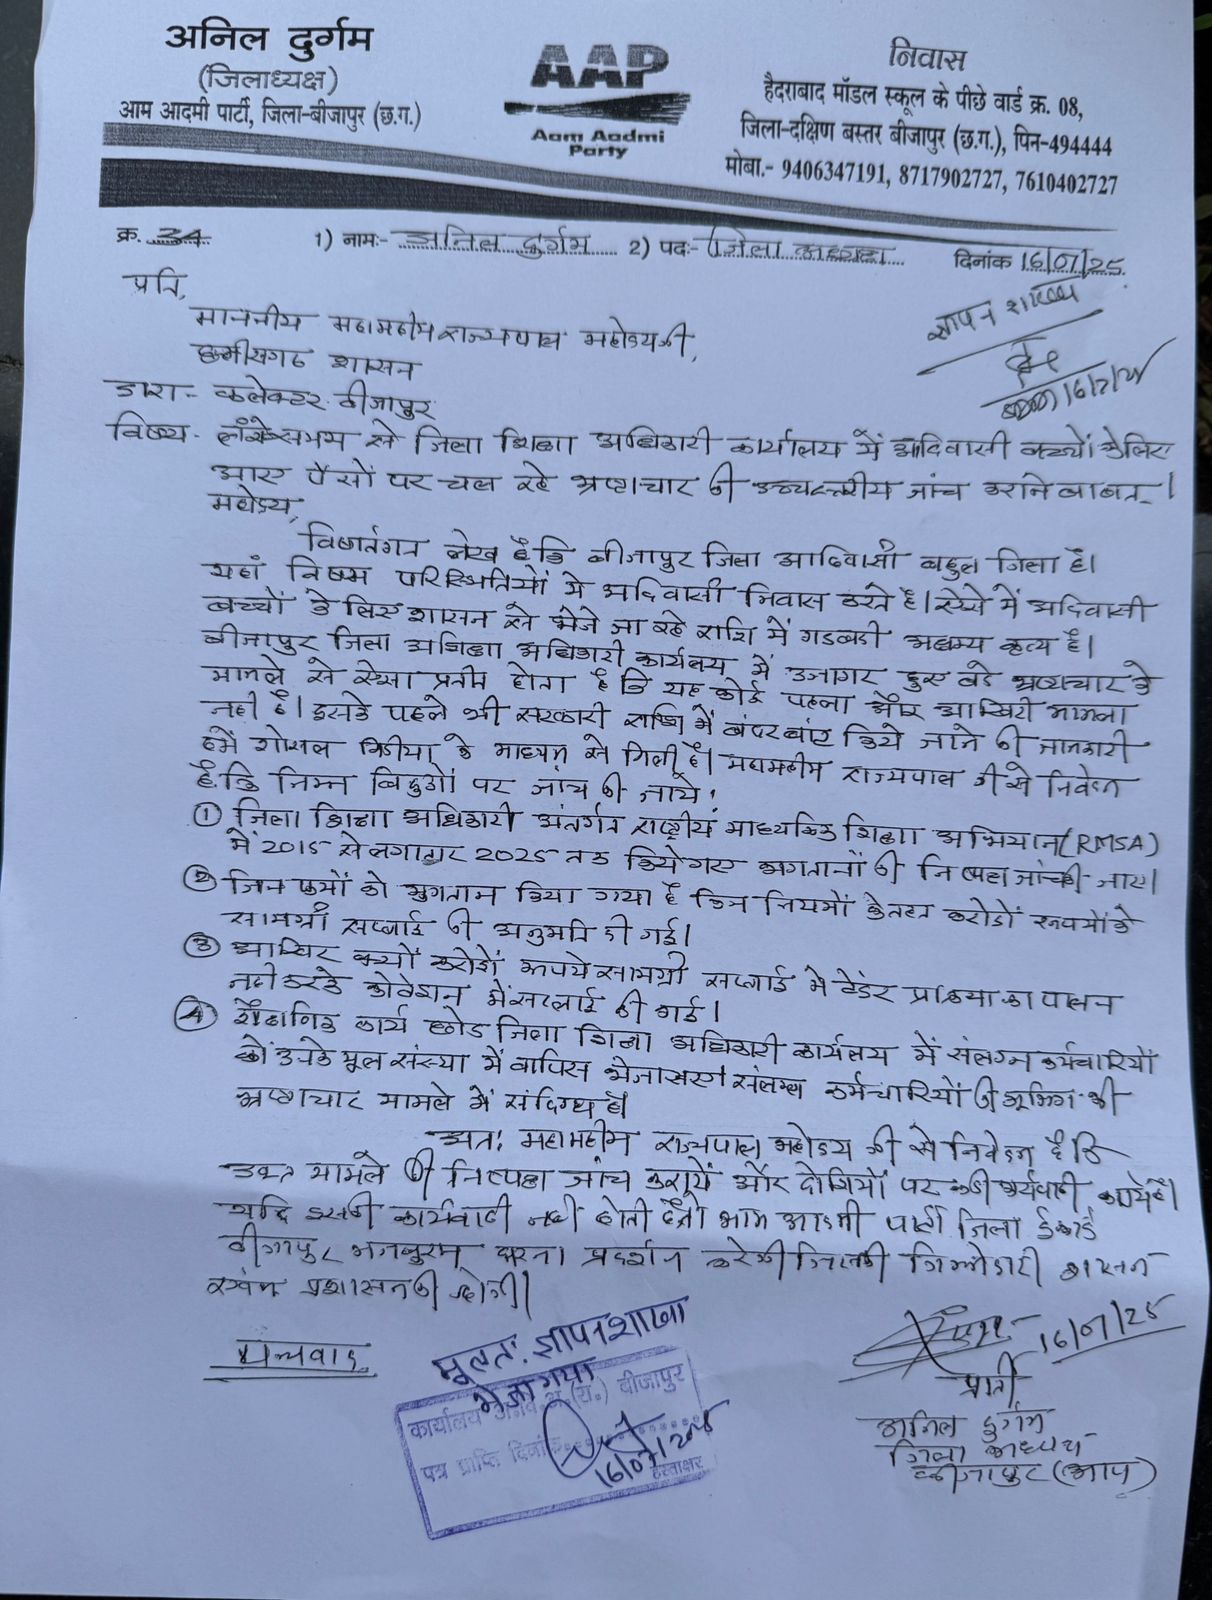 अनिल दुर्गम
(जिलाध्यक्ष)
आम आदमी पार्टी, जिला-बीजापुर (छ.ग.)
AAP
Aam Aadmi
Party
निवास
हैदराबाद मॉडल स्कूल के पीछे वार्ड क्र. 08,
जिला-दक्षिण बस्तर बीजापुर (छ.ग.), पिन-494444
मोबा.- 9406347191, 8717902727, 7610402727
क्र. 34 1) नामः- अनिल दुर्गम 2) पदः- जिला अध्यक्ष दिनांक 16/07/25
ज्ञापन शाखा
16/7/25
प्रति,
माननीय महामहीम राज्यपाल महोदय जी,
छत्तीसगढ शासन
द्वारा - कलेक्टर बीजापुर
विषय - लंबे समय से जिला शिक्षा अधिकारी कार्यालय में आदिवासी बच्चों के लिए
आए पैसों पर चल रहे भ्रष्टाचार की उच्चस्तरीय जांच कराने बाबत्।
महोदय,
विषयांतर्गत लेख है कि बीजापुर जिला आदिवासी बहुल जिला है।
यहां विषम परिस्थितियों में आदिवासी निवास करते है। ऐसे में आदिवासी
बच्चों के लिए शासन से भेजे जा रहे राशि में गडबडी अक्षम्य कृत्य है।
बीजापुर जिला शिक्षा अधिकारी कार्यलय में उजागर हुए बडे भ्रष्टाचार के
मामले से ऐसा प्रतीत होता है कि यह कोई पहला और आखिरी मामला
नही है। इसके पहले भी सरकारी राशि में बंदरबांट किये जाने की जानकारी
हमें शोसल मिडीया के माध्यम से मिली है। महामहीम राज्यपाल जी से निवेदन
है कि निम्न बिंदुओं पर जांच की जाये!
① जिला शिक्षा अधिकारी अंतर्गत राष्ट्रीय माध्यमिक शिक्षा अभियान (RMSA)
में 2015 से लगातार 2025 तक किये गए भुगतानों की निष्पक्ष जांच की जाए।
② जिन फर्मों को भुगतान किया गया है किन नियमों के तहत करोडों रूपयों के
सामग्री सप्लाई की अनुमति दी गई।
③ आखिर क्यों करोडों रूपये सामग्री सप्लाई में टेंडर प्रक्रिया का पालन
नही करके कोटेशन में सप्लाई की गई।
④ शैक्षणिक कार्य छोड जिला शिक्षा अधिकारी कार्यलय में संलग्न कर्मचारियों
को उनके मूल संस्था में वापिस भेजा जाए संलग्न कर्मचारियों की भूमिका भी
भ्रष्टाचार मामले में संदिग्ध है।
अतः महामहीम राज्यपाल महोदय जी से निवेदन है कि
उक्त मामले की निष्पक्ष जांच करायें और दोषियों पर कडी कार्यवाही
यदि इसकी कार्यवाही नही होती है तो आम आदमी पार्टी जिला ईकाई
बीजापुर धरना प्रदर्शन करेगी जिसकी जिम्मेदारी शासन
एवंम प्रशासन की होगी।
धन्यवाद
मूलतः ज्ञापन शाखा
भेजा गया
कार्यालय बीजापुर
पत्र प्राप्ति दिनांक
16/07/25
हस्ताक्षर
16/07/25
प्रार्थी
अनिल दुर्गम
जिला अध्यक्ष
बीजापुर (आप)